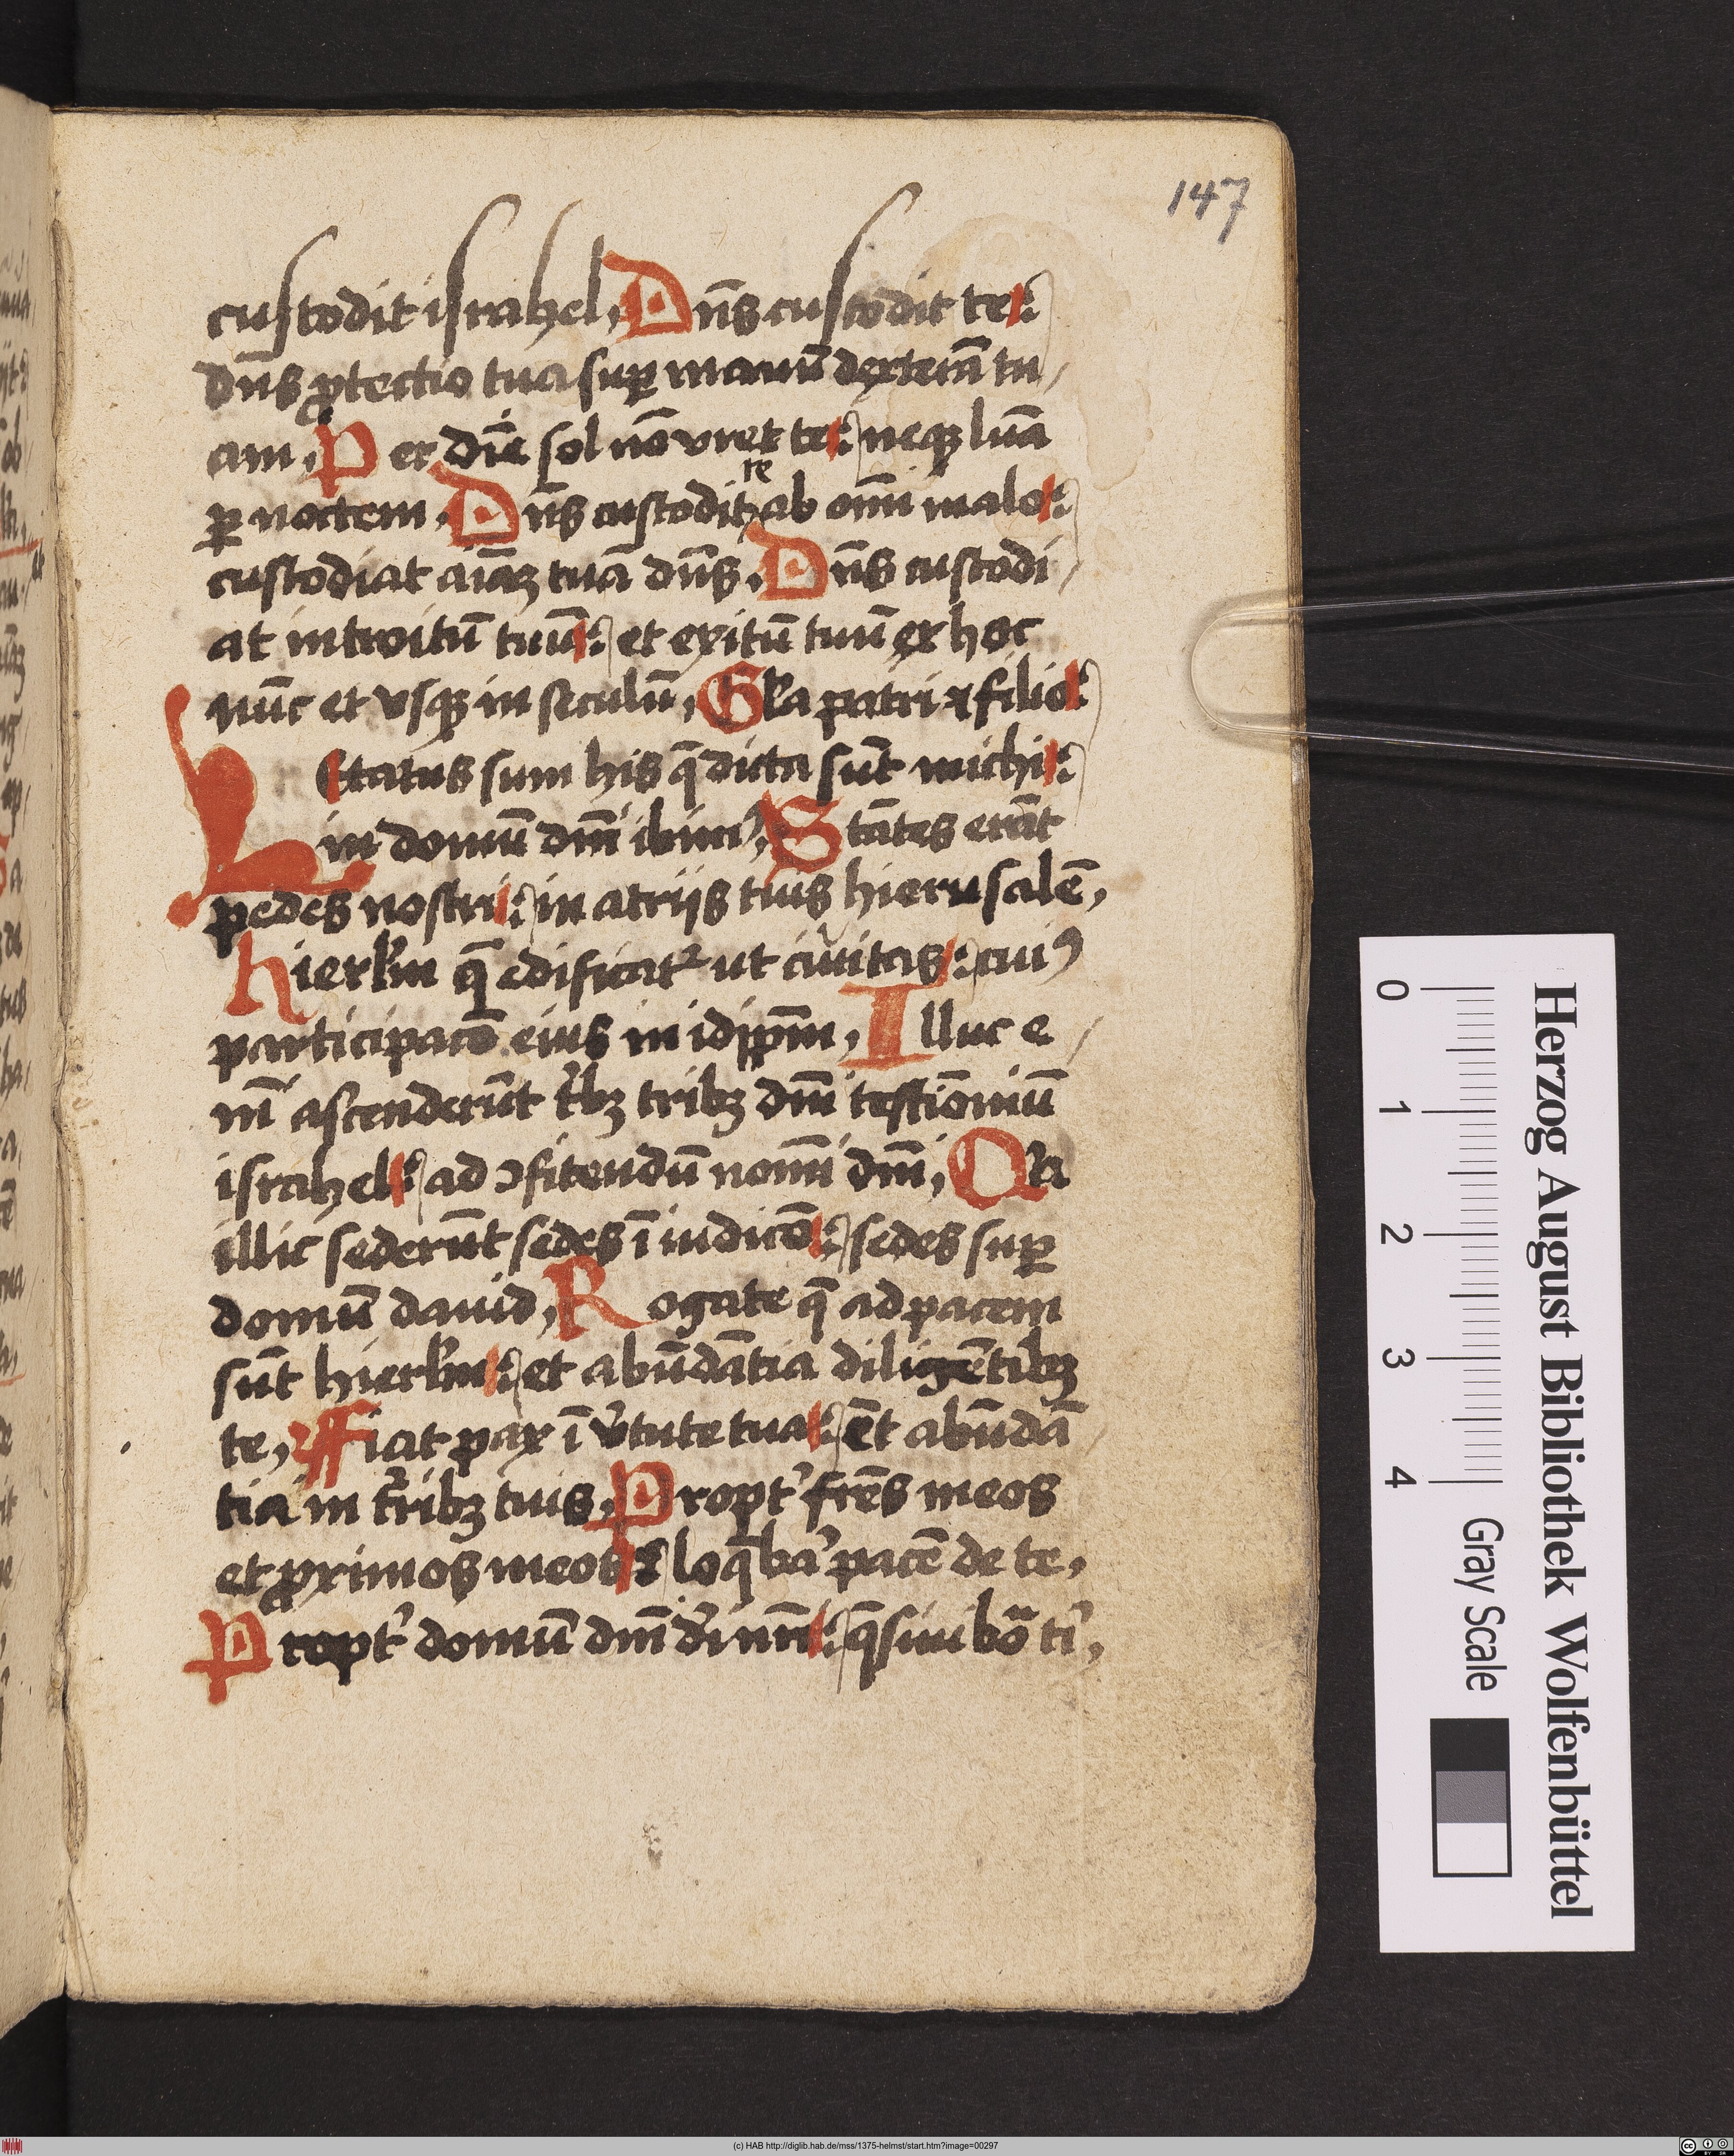 147
custodit israhel, Dn̄s custodit te:
dn̄s ꝓtectio tua suꝑ manū dexterā tu/
am, Per diē sol nō vret te: neqꝫ lūa
ꝑ noctem, Dn̄s custodit te ab om̄i malo:
custodiat aīaꝫ tuā dn̄s, Dn̄s custodi/
at introitū tuū: et exitū tuū ex hoc
nūc et vsqꝫ in seculū, Gl̄a patri ⁊ filio:
LEtatus sum his q̄ dicta sūt michi:
in domū dn̄i ibimꝰ, Stātes erāt
pedes nostri: in atrijs tuis hierusalē,
hierl̄m q̄ edificatᷣ ut ciuitas: cuiꝰ
participacō eius in idip̄m, Illuc e/
nī ascenderūt t̓bꝫ tribꝫ dn̄i testiōniū
israhel: ad ꝯfitendū nom̄i dn̄i, Qr̄a
illic sederūt sedes ī iudicō: sedes suꝑ
domū dauid, Rogate q̄ ad pacem
sūt hierl̄m: et abūdātia diligētibꝫ
te, ffiat pax ī v̓tute tua: et abūdā/
tia in t̓ribꝫ tuis, Propt̓ fr̄es meos
et ꝓximos meos: loq̄baᷣ pacē de te,
Propt̓ domū dn̄i d̓i nr̄i: q̄siui bōa t̓,
Herzog August Bibliothek Wolfenbüttel
0 1 2 3 4 Gray Scale
(c) HAB http://diglib.hab.de/mss/1375-helmst/start.htm?image=00297